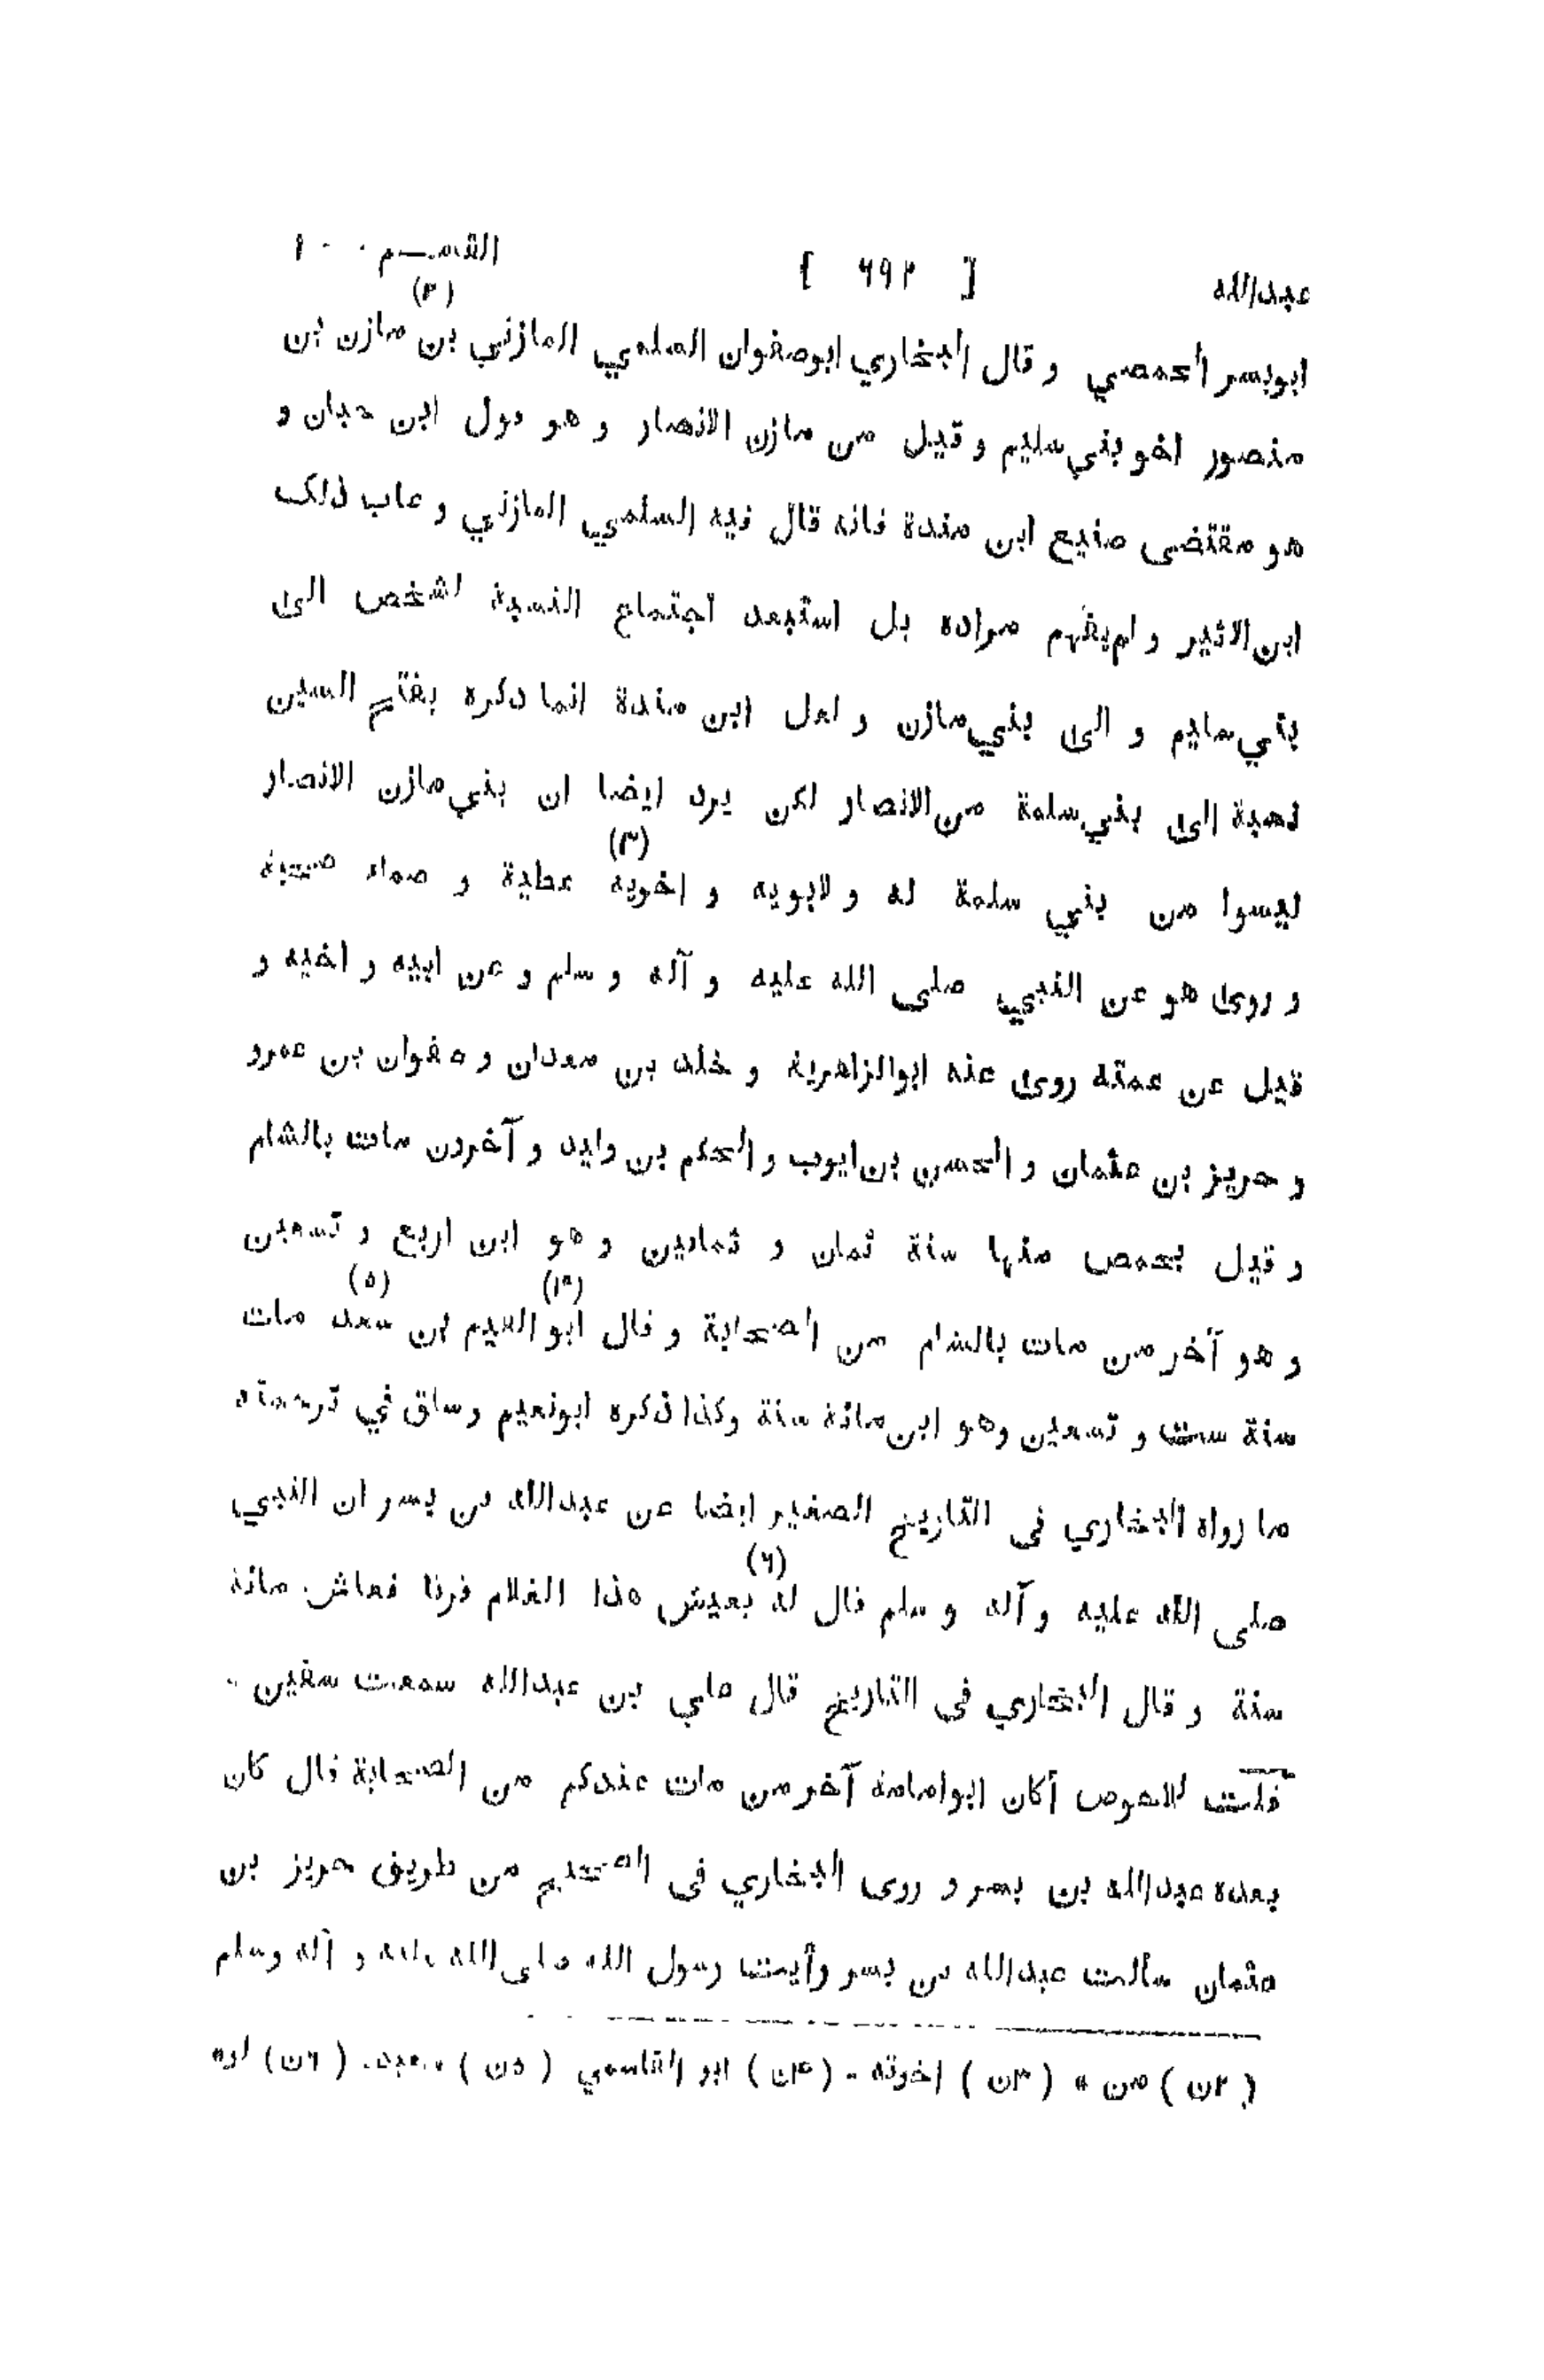 عبدالله [ ٦٩٢ ] القســم ٠ ٠ ١
ابوبسر الحمصي و قال البخاري ابوصفوان السلمي المازني (٢) بن مازن بن
منصور اخو بني سليم و قيل من مازن الانصار و هو قول ابن حبان و
هو مقتضى صنيع ابن مندة فانه قال فيه السلمي المازني و عاب ذلك
ابن الاثير و لم يفهم مراده بل استبعد اجتماع النسبة لشخص الى
بني سليم و الى بني مازن و لعل ابن مندة انما ذكره بفتح السين
نسبة الى بني سلمة من الانصار لكن يرد ايضا ان بني مازن الانصار
ليسوا من بني سلمة له و لابويه و اخويه (٣) عطية و صماء صحبة
و روى هو عن النبي صلى الله عليه و آله و سلم و عن ابيه و اخيه و
قيل عن عمته روى عنه ابوالزاهرية و خلد بن معدان و صفوان بن عمرو
و حريز بن عثمان و الحسن بن ايوب و الحكم بن وليد و آخرون مات بالشام
و قيل بحمص منها سنة ثمان و ثمانين و هو ابن اربع و تسعين
و هو آخر من مات بالشام من الصحابة و قال ابو القيم (٤) ابن سعد (٥) مات
سنة ست و تسعين وهو ابن مائة سنة وكذا ذكره ابونعيم وساق في ترجمته
ما رواه البخاري فى التاريخ الصغير ايضا عن عبدالله بن بسر ان النبي
صلى الله عليه و آله و سلم قال له (٦) يعيش هذا الغلام قرنا فعاش مائة
سنة و قال البخاري فى التاريخ قال علي بن عبدالله سمعت سفين -
قلت للاحوص أكان ابوامامة آخر من مات عندكم من الصحابة قال كان
بعده عبدالله بن بسر و روى البخاري فى الصحيح من طريق حريز بن
عثمان سألت عبدالله بن بسر رأيت رسول الله صلى الله عليه و آله وسلم
( ٢ن ) من * ( ٣ن ) اخوته - ( ٤ن ) ابو القاسمي ( ٥ن ) سعيد - ( ٦ن )